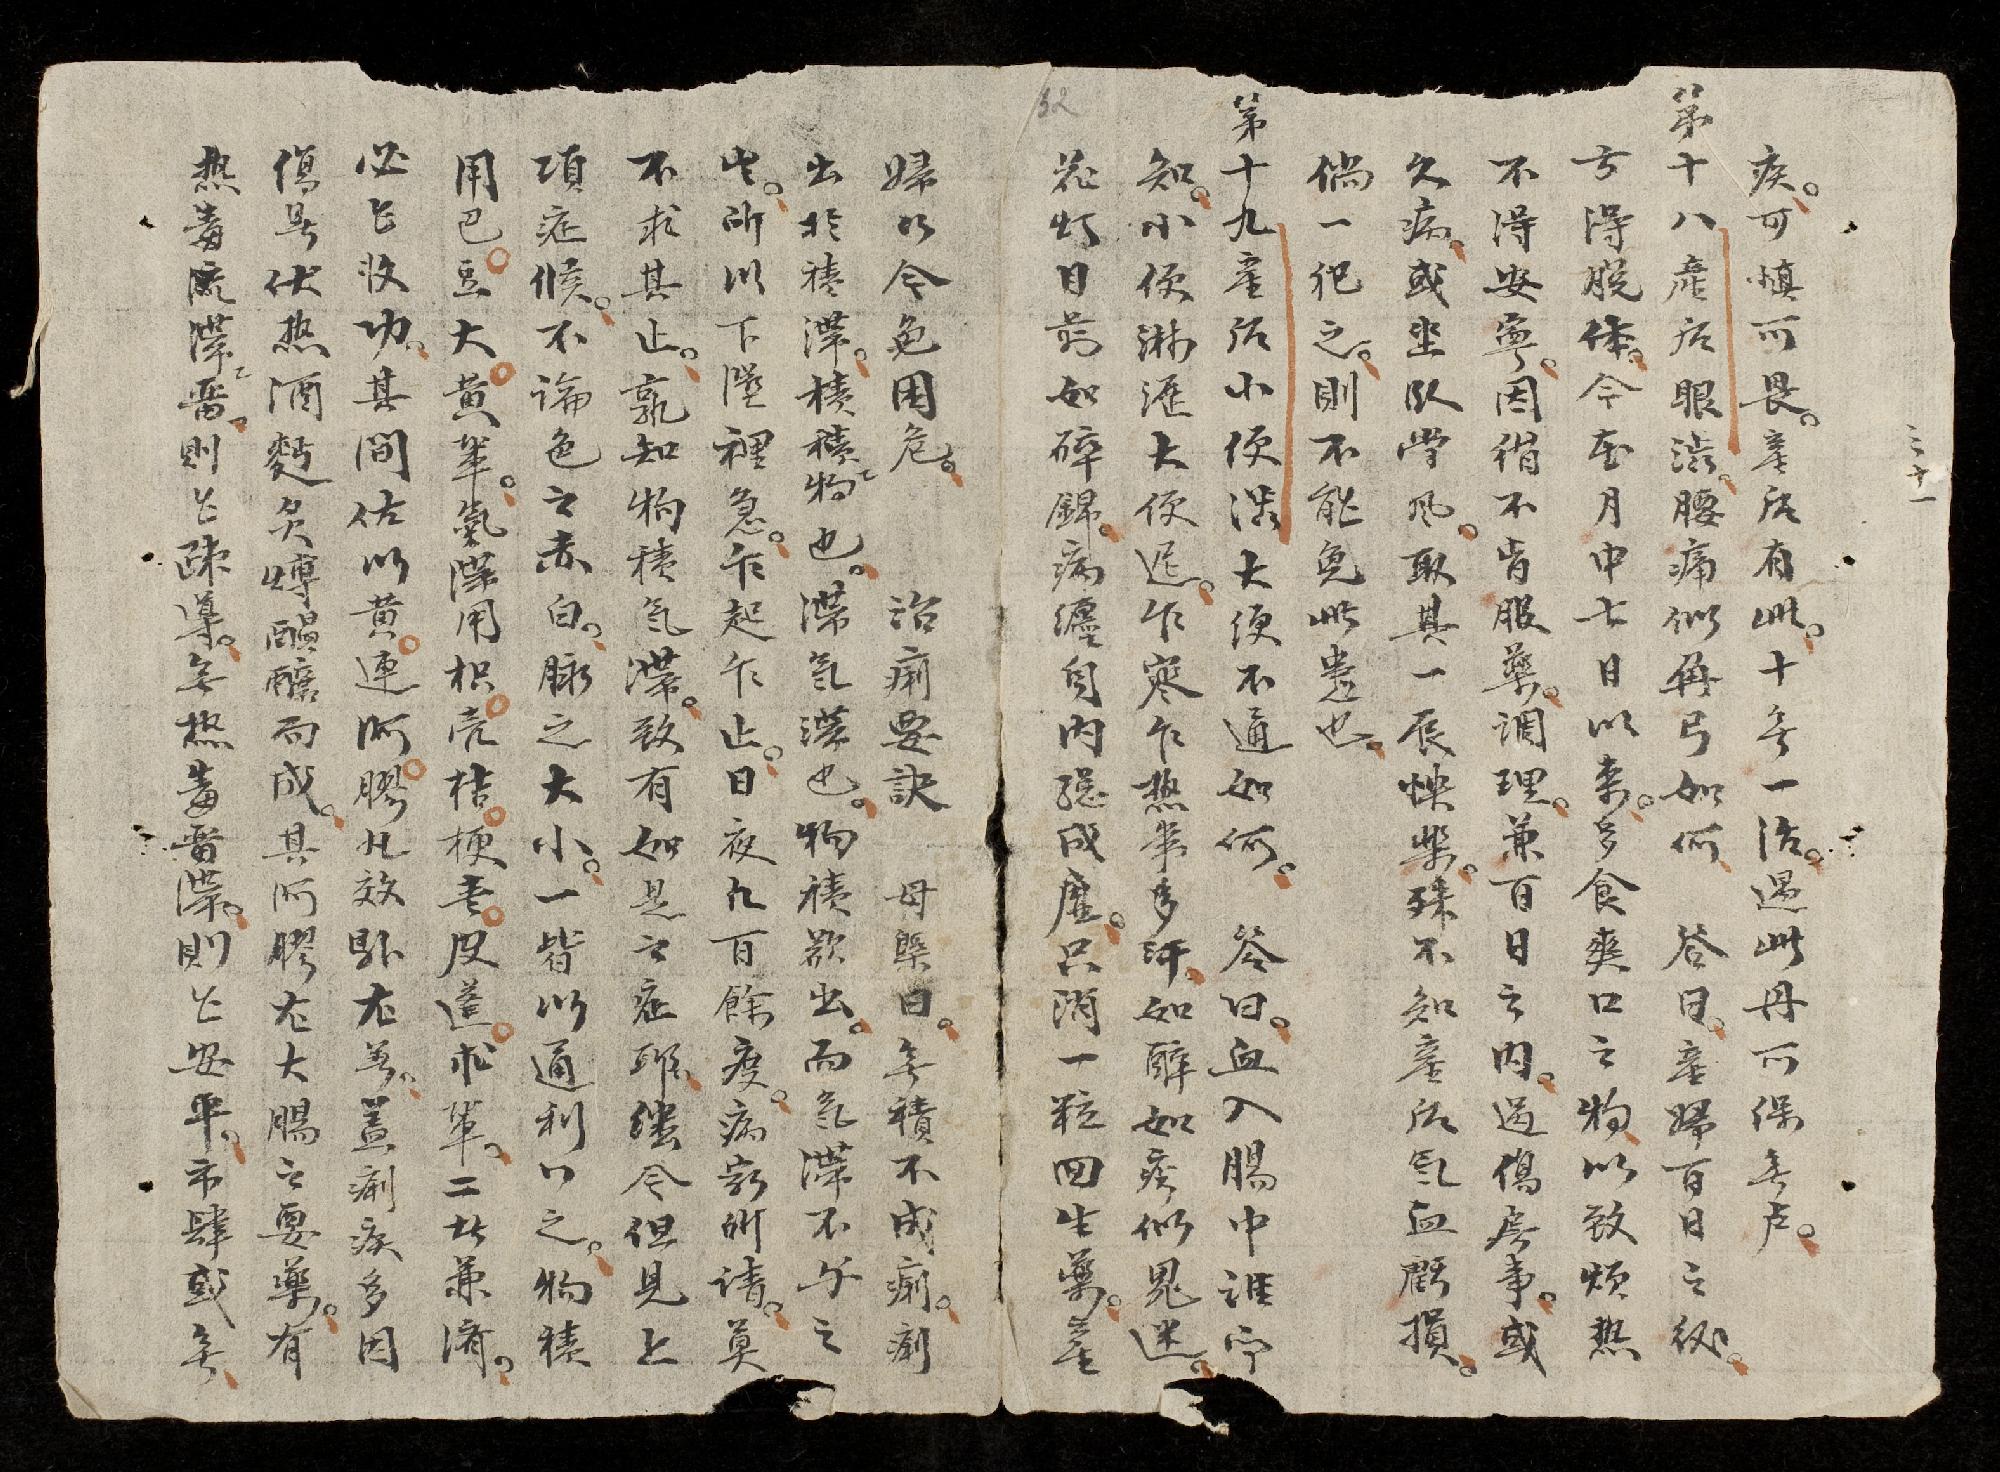 三十一
疾。可慎可畏。產后有此。十無一活。遇此丹可保無虛。
第十八產后眼澁。腰痛似角弓如何 答曰。產婦百日之後。
方得脱体。今在月中七日以來。多食爽口之物以致煩熱
不得安寧。因循不肯服藥。調理。兼百日之内。過傷房事。或
久病。或坐卧當風。取其一辰快樂。殊不知產后氣血虧損。
倘一犯之。則不能免此患也。
第十九產后小便澁大便不通如何。 答曰。血入腸中誰
知。小便淋瀝大便遲。乍寒乍熱事多汗。如醉如痴似鬼迷。
花灯目前如碎錦。病纏身内總成虛。只消一粒回生藥。產
32
婦如今免困危。 治痢要訣 毋槩曰。無積不成痢。痢
出於積滯。積積物也。滯氣滯也。物積欲出。而氣滯不與之
出。所以下墜裡急。乍起乍止。日夜凡百餘度。病家所請。莫
不求其止。孰知物積氣滯。致有如是之症耶。縱令但見上
項症候。不論色之赤白。脉之大小。一皆以通利行之。物積
用巴豆大黄輩。氣滯用枳壳桔梗青皮蓬朮輩。二者兼濟。
必已收功。其間佐以黄連阿膠凡效驗尤著。盖痢疾多因
傷暑伏热酒麵炙煿醖釀而成。其阿膠尤大腸之要藥。有
热毒流滯留。則已疎導。無热毒留滯。則已安平。市肆或無